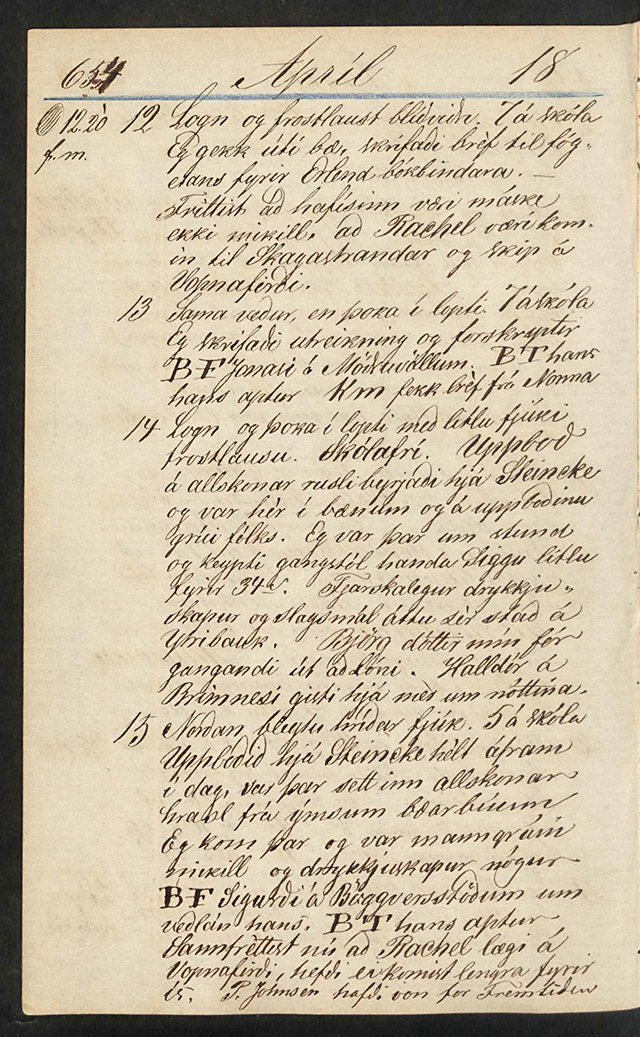 654 Apríl 18
12.20 12 Logn og frostlaust blíðviðr. 7 á skóla
f.m. Eg gekk útí bæ, skrifaði bréf til fóg-
etans fyrir Erlend bókbindara. —
Fréttist að hafísinn væri máske
ekki mikill, að Rachel væri kom-
in til Skagastrandar og skip á
Vopnafirði.
13 Sama veður, en þoka í lopti. 7 á skóla
Eg skrifaði utreikning og forskryptir
BF Jonasi á Möðruvöllum. BT hans
hans aptur Km fekk bréf frá Nonna
14 Logn og þoka í lopti með litlu fjúki
frostlausu. Skólafrí. Uppboð
á allskonar rusli byrjaði hjá Steincke
og var hér í bænum og á uppboðinu
grúi fólks. Eg var þar um stund
og keypti gangstól handa Siggu litlu
fyrir 34 Fjarskalegur drykkju-
skapur og slagsmál áttu sér stað á
Ytribauk. Björg dóttir mín fór
gangandi út að Lóni. Halldór á
Brimnesi gisti hjá mér um nóttina.
15 Norðan bleytu hríðar fjúk. 5 á skóla
Uppboðið hjá Steincke hélt áfram
í dag, var þar sett inn allskonar
hrasl frá ýmsum bæarbúum
Eg kom þar og var manngrúin
mikill og drykkjuskapur nógur
BF Sigurði á Böggversstöðum um
veðlán hans. BT hans aptur
Sannfréttist nú að Rachel lægi á
Vopnafirði, hefði ei komist lengra fyrir
ís. P. Johnsen hafði von for Fremtiden